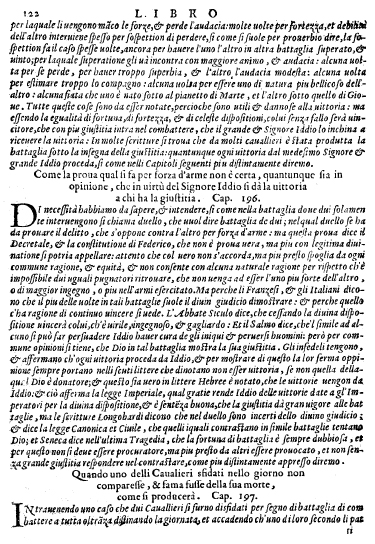 122 LIBRO
per laquale li uengono mãco le forze, & perde l'audacia: molte uolte per fortezza, et debilità
dell'altro interuiene spesso per sospettion di perdere, sì come si suole per prouerbio dire, la so-
spettion fa il caso spesse uolte, ancora per hauere l'uno l'altro in altra battaglia superato, &
uinto; per laqual superatione gli uà incontra con maggiore animo, & audacia: alcuna uol-
ta per se perde, per hauer troppo superbia, & l'altro audacia modesta: alcuna uolta
per estimare troppo lo compagno: alcuna uolta per essere uno di natura piu bellico so dell'-
altro; si come è alcuno che uno è nato sotto al pianetto di Marte, et l'altro sotto quello di Gio-
ue. Tutte queste cose sono da esser notate, percioche sono utili & dannose alla uittoria: ma
essendo la egualità di fortuna, di fortezza, & di celeste dispositioni, colui senza fallo serà uin-
citore, che con piu giustitia intra nel combattere, che il grande & Signore Iddio lo inchina a
riceuere la uittoria: In molte scritture si troua che da molti cauallieri è stata produtta la
battaglia sotto la insegna della giustitia: quantunque ogni uittoria dal medesimo Signore &
grande Iddio proceda, sì come nelli Capitoli seguenti piu distintamente diremo.
Come la proua qual si fa per forza d'arme non è certa, quantunque sia in
opinione, che in uirtù del Signore Iddio si dà la uittoria
a chi ha la giustitia. Cap. 196.
DI necessità habbiamo da sapere, & intendere, sì come nella battaglia doue dui solamen
te interuengono si chiama duello, che uuol dire battaglia de dui; nel qual duello si ha
da prouare il delitto, che s'oppone contra l'altro per forza d'arme: ma questa proua dice il
Decretale, & la constitutione di Federico, che non è proua uera, ma piu con legitima diui-
natione si potria appellare: attento che col uero non s'accorda, ma piu presto si slogia da ogni
commune ragione, & equità, & non consente con alcuna naturale ragione per rispetto ch'è
impossibile dui uguali pugnatori ritrouare, che non uenga ad esser l'uno piu forte dell'altro,
o di maggior ingegno, o piu nell'armi esercitato. Ma perche li Franzesi, & gli Italiani dico-
no che il piu delle uolte in tali battaglie suole il diuin giudicio dimostrare: & perche quello
c'ha ragione di continuo uincere si uede. L'Abbate Siculo dice, che cessando la diuina dispo-
sitione uincerà colui, ch'è uirile, ingegnoso, & gagliardo: Et il Salmo dice, che'l simile ad al-
cuno si può far persuadere Iddio hauer cura degli iniqui & peruersi huomini: però per com
mune opinioni si tiene, che Dio in tal battaglia mostra la sua giustitia. Gli infedeli tengono,
& affermano ch'ogni uittoria proceda da Iddio; & per mostrare di questo la lor ferma oppi-
nione sempre portano nelli fenti littere che dinotano non esser uittoria, se non quella della-
qual Dio è donatore; & questo sia uero in littere Hebree è notato, che le uittorie uengon da
Iddio: & ciò afferma la legge Imperiale, qual gratie rende Iddio delle uittorie date a gl'Im-
peratori per la diuina dispositione, & è senza buona, che la giustitia dà gran uigore alle bat
taglie, ma le scritture Longobardi dicono che nel duello sono incerti dello diuino giudicio;
& dice la legge Canonica et Ciuile, che quelli iquali contrastano in simile battaglie tentano
Dio; et Seneca dice nell'ultima Tragedia, che la fortuna di battaglia è sempre dubbiosa, et
per questo non si deue essere procuratore, ma piu presto da altri essere prouocato, et non sen-
za grande giustitia rispondere nel contrastare, come piu distintamente appresso diremo.
Quando uno delli Cauallieri sfidati nello giorno non
comparesse, & fama fusse della sua morte,
come si producerà. Cap. 197.
INtrauenendo uno caso che dui Cauallieri si furno disfidati per segno di battaglia di com
battere a tutta oltrãza distinando la giornata, et accadendo ch'uno di loro secondo li pat
ti